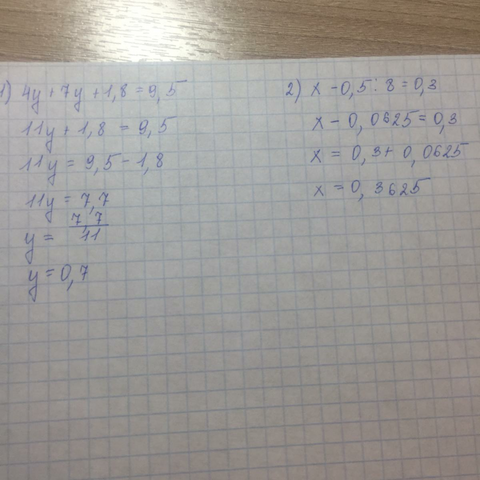 1) 4y + 7y + 1,8 = 9,5
11y + 1,8 = 9,5
11y = 9,5 - 1,8
11y = 7,7
y = 7,7/11
y = 0,7
2) x - 0,5 : 8 = 0,3
x - 0,0625 = 0,3
x = 0,3 + 0,0625
x = 0,3625